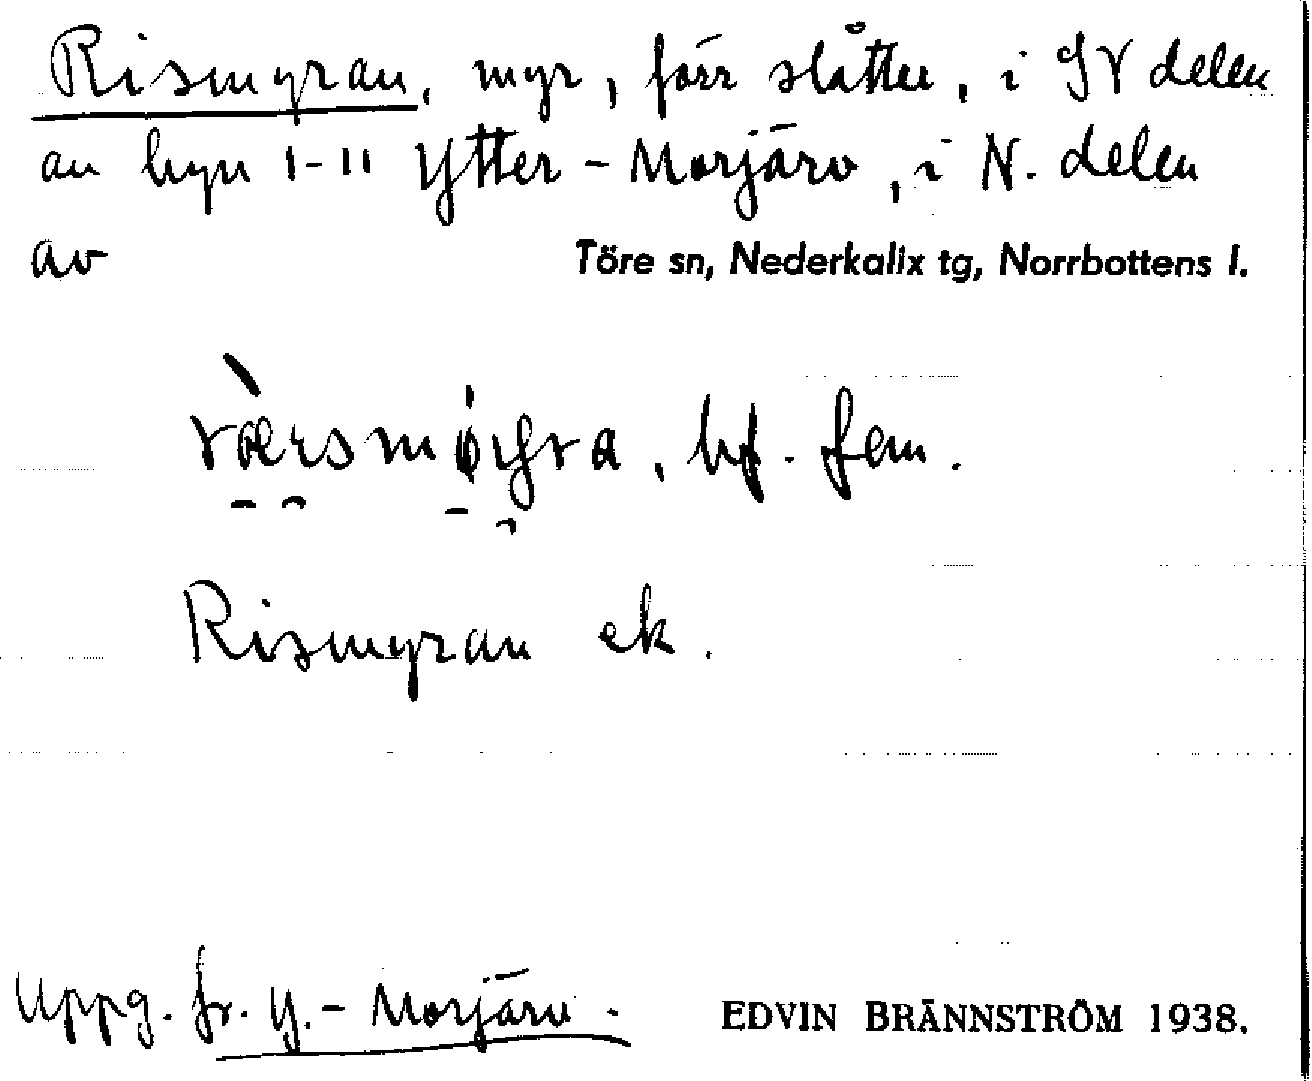 Rismyran, myr, förr slåtter, i SV delen
av byn 1-11 Ytter-Morjärv, i N. delen
av Töre sn, Nederkalix tg, Norrbottens l.
bf. fem.
Rismyran ek.
Uppg. fr. Y.-Morjärv.
EDVIN BRÄNNSTRÖM 1938.